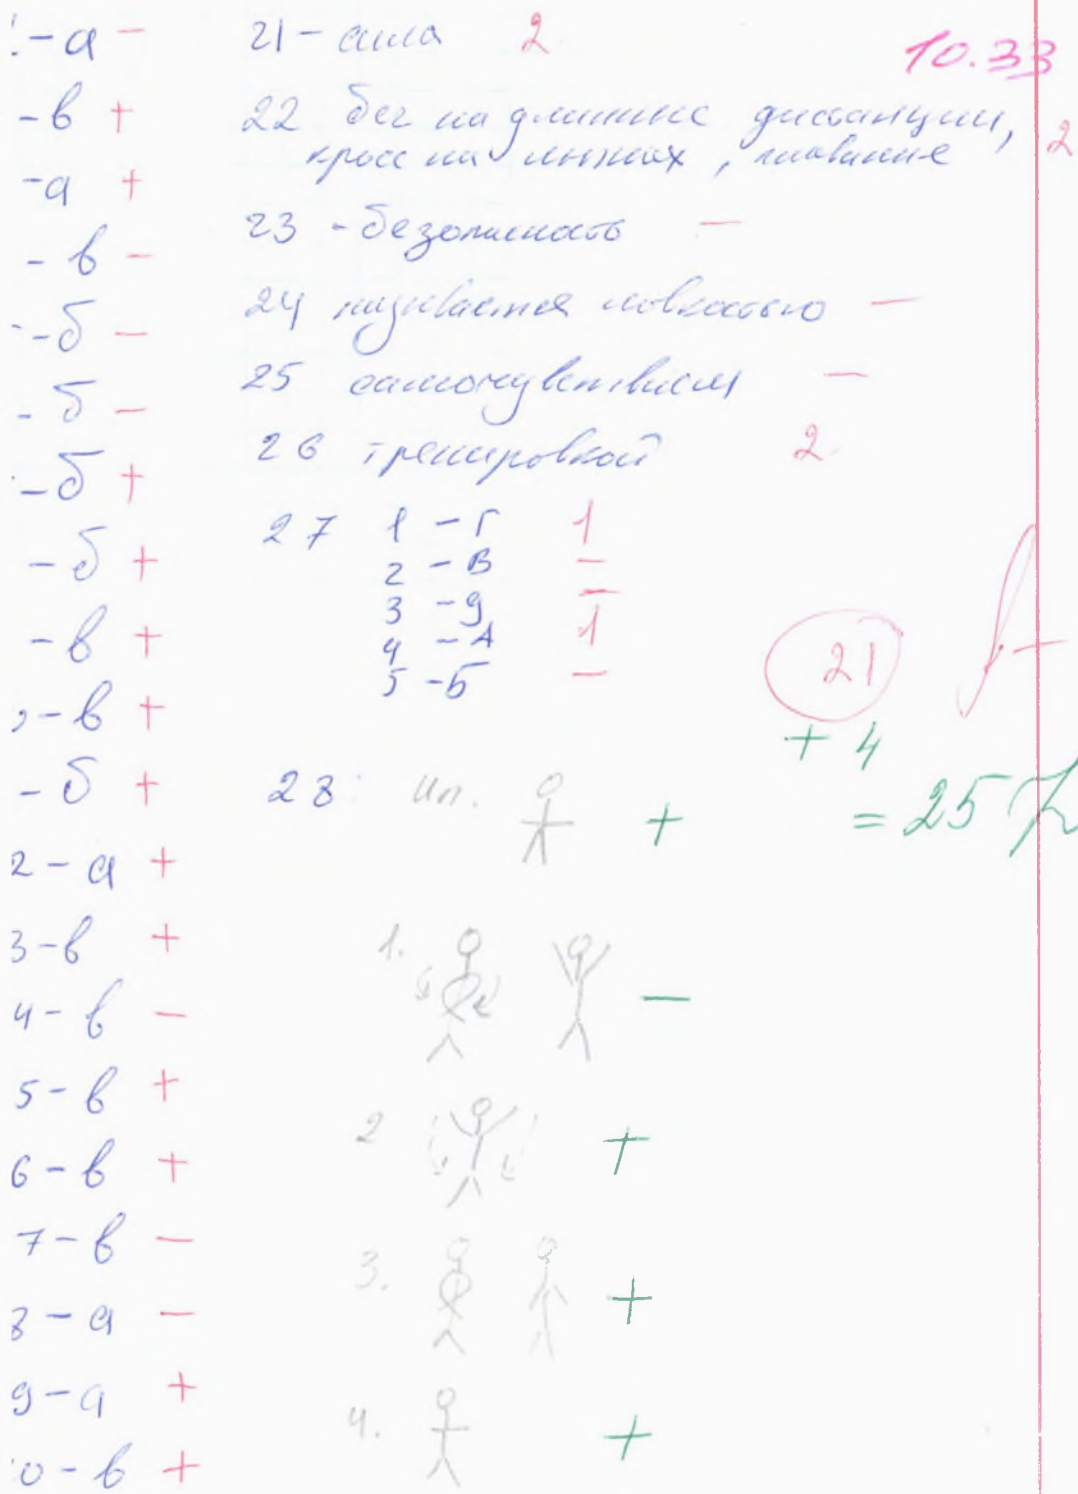 -а -
-в +
-а +
-в -
-б -
-б -
-б +
-б +
-в +
-в +
-б +
2-а +
3-в +
4-в -
5-в +
6-в +
7-в -
8-а -
9-а +
0-в +
10.33
21 - сила 2
22 бег на длинные дистанции, 2
кросс на лыжах, плавание
23 - безопасность -
24 называется ловкостью -
25 самочувствием -
26 тренировкой 2
27 1 - Г 1
2 - В -
3 - д -
4 - А 1
5 - Б -
21
+ 4
= 25
28 ип. +
1. -
2 +
3. +
4. +